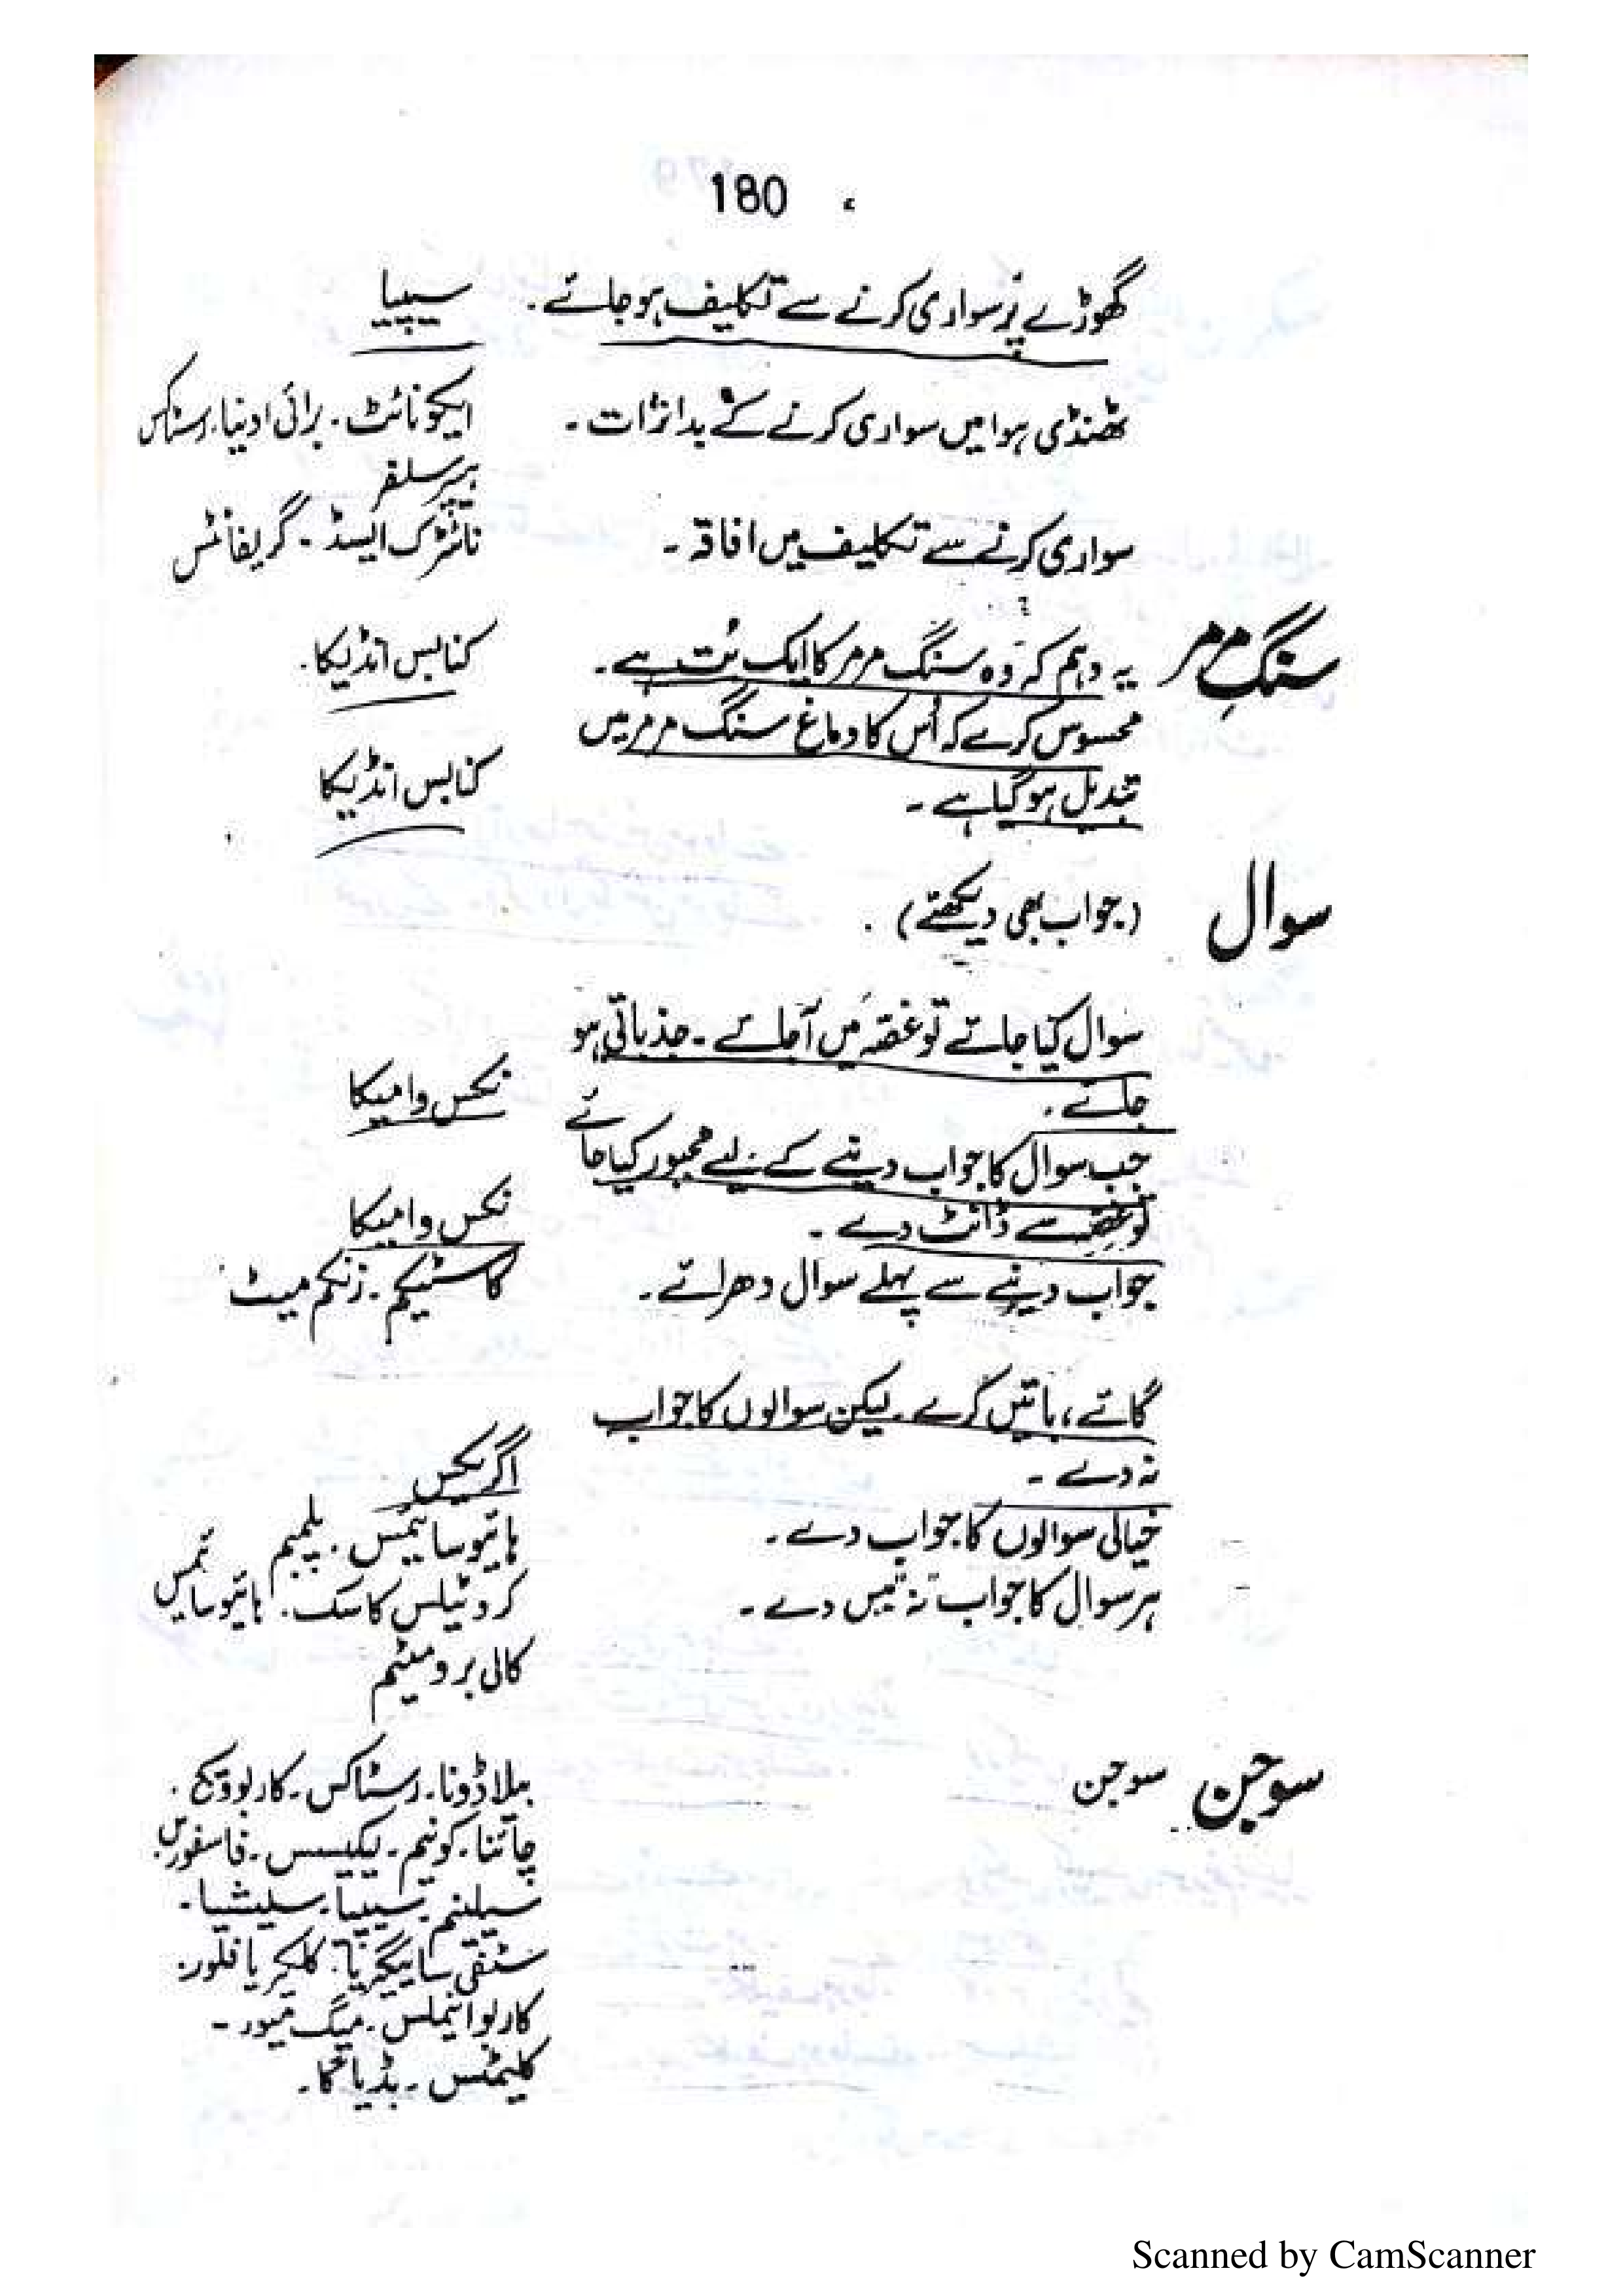 180
گھوڑے پر سواری کرنے سے تکلیف ہو جائے ۔ سیپیا
ٹھنڈی ہوا میں سواری کرنے کے بداثرات ۔ ایکونائٹ ۔ برائی اونیا ۔ رسٹاکس
ہیپر سلفر
سواری کرنے سے تکلیف میں افاقہ ۔ نائٹرک ایسڈ ۔ گریفائٹس
سنگِ مرمر یہ وہم کہ وہ سنگ مرمر کا ایک بُت ہے ۔ کنابس انڈیکا ۔
محسوس کرے کہ اُس کا دماغ سنگ مرمر میں
تبدیل ہو گیا ہے ۔ کنابس انڈیکا
سوال (جواب بھی دیکھئے) ۔
سوال کیا جائے تو غصہ میں آ جائے ۔ جذباتی ہو
جائے ۔ نکس وامیکا
جب سوال کا جواب دینے کے لیے مجبور کیا جائے
تو غصہ سے ڈانٹ دے ۔ نکس وامیکا
جواب دینے سے پہلے سوال دھرائے ۔ کاسٹیکم ۔ زنکم میٹ
گائے، باتیں کرے ۔ لیکن سوالوں کا جواب
نہ دے ۔ اگریکس
خیالی سوالوں کا جواب دے ۔ ہائیوسائیمس ۔ پلمبم
ہر سوال کا جواب نہ میں دے ۔ کروٹیلس کاسک ۔ ہائیوسائیمس
کالی برومیٹم
سوجن سوجن بیلاڈونا ۔ رسٹاکس ۔ کاربوویج ۔
چائنا ۔ کونیم ۔ لیکیسس ۔ فاسفورس ۔
سیلینم ۔ سیپیا ۔ سلیشیا ۔
سٹفی سائیگریا ۔ کلکیریا فلور ۔
کاربو انیملس ۔ میگ میور ۔
کلیمٹس ۔ بڈیاگا ۔
Scanned by CamScanner